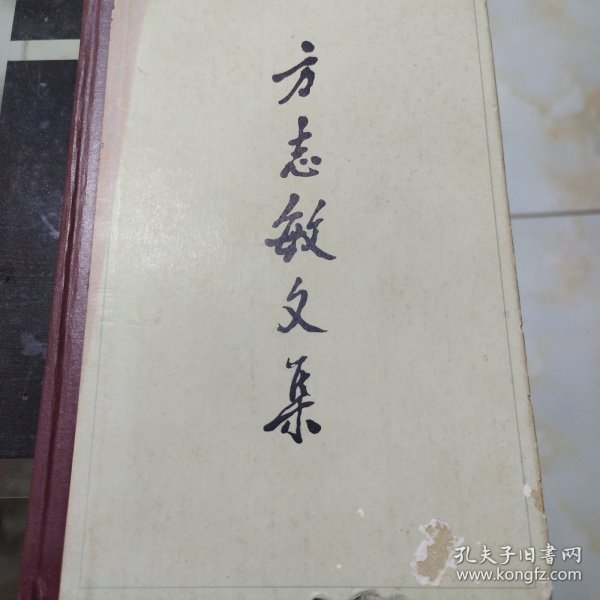 方志敏文集
孔夫子旧书网
www.kongfz.com